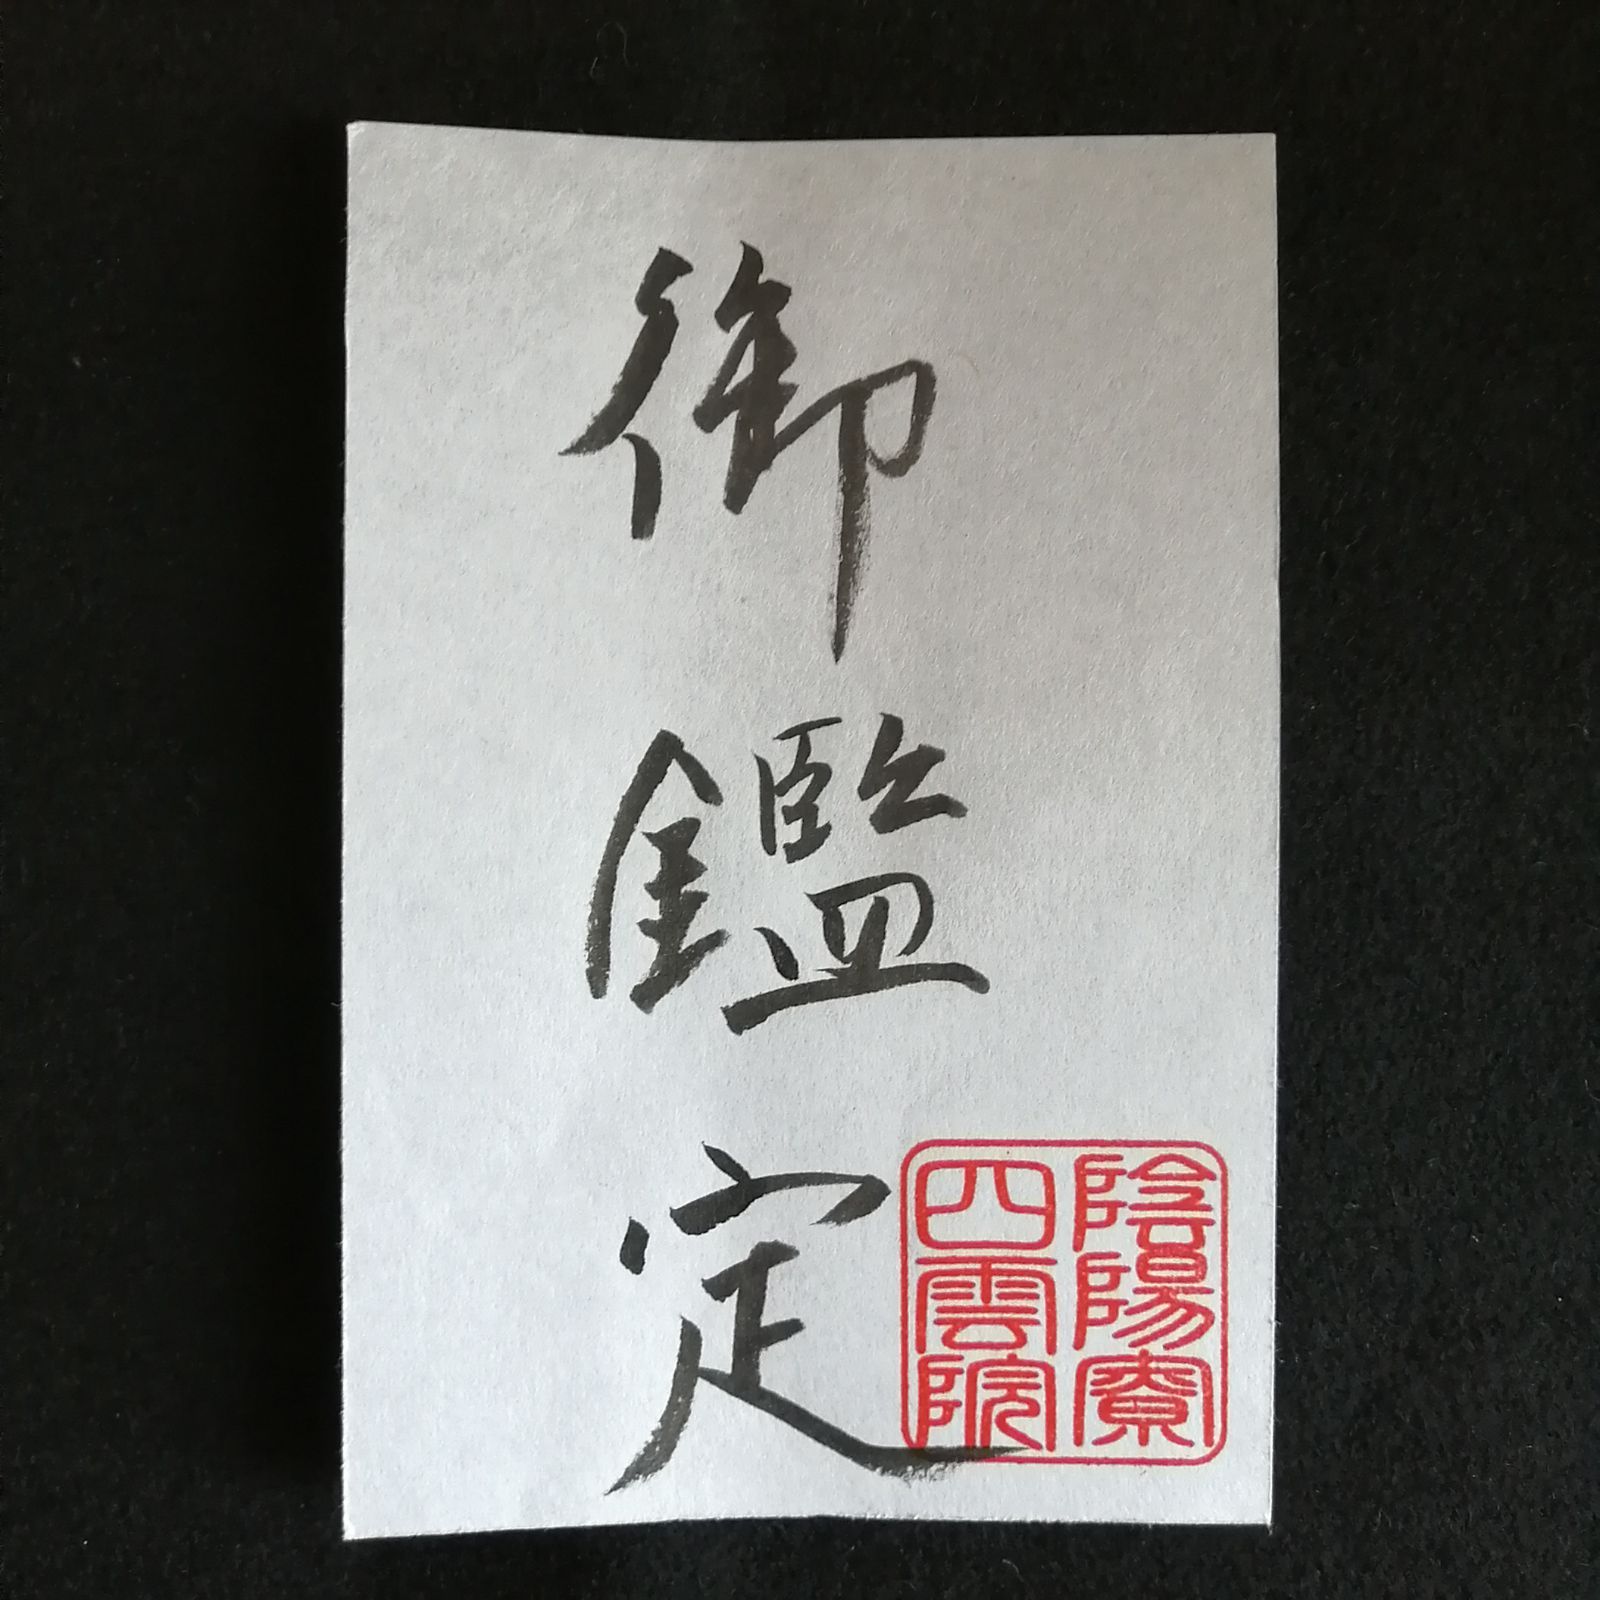 御鑑定
陰陽寮
四雲院